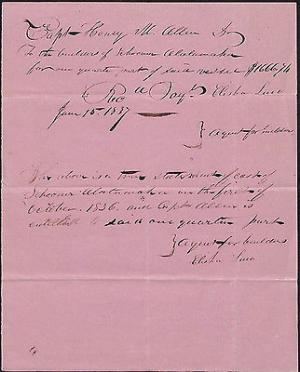 Capt Henry M Allen Dr
To the builders of Schooner
for one quarter part of said vessel $1666 74
Rec'd Payt. Elisha
June 15. 1837
} agent for builders
The above is a true statement of cost of
Schooner on the first of
October 1836. and Capt Allen is
entitled to said one quarter part
} agent for builders
Elisha